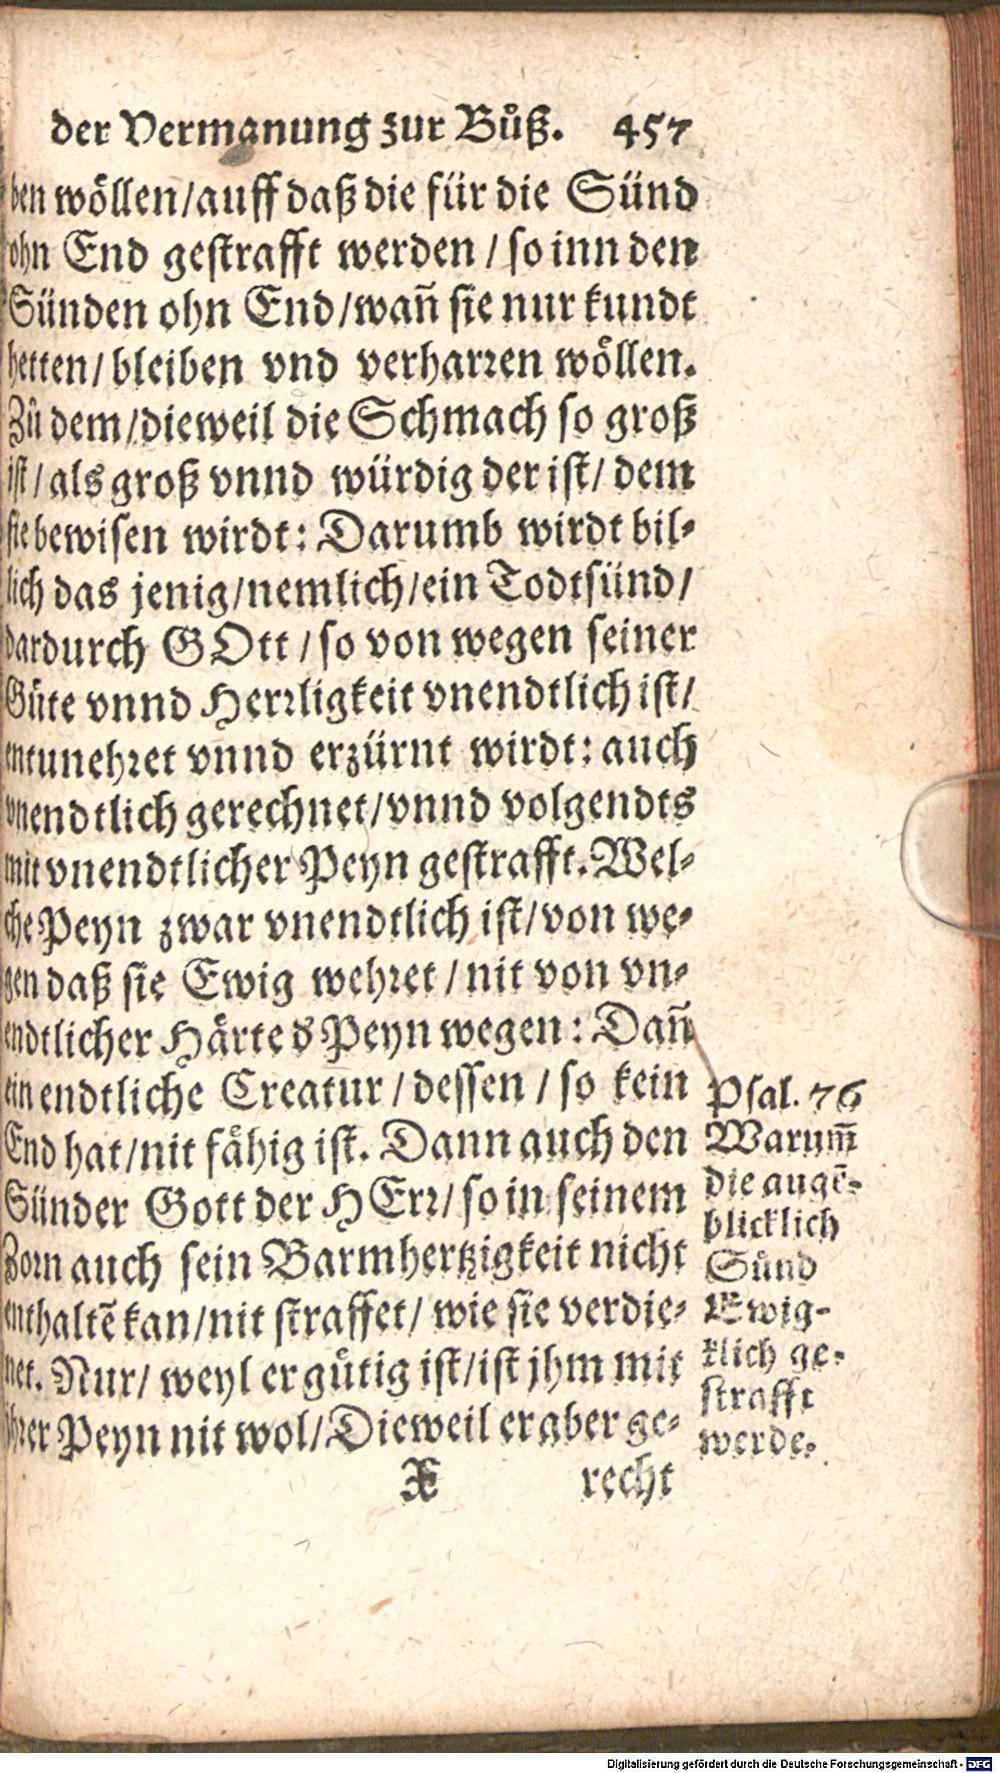 der Vermanung zur Bůß. 457
ben wöllen/auff daß die für die Sünd
ohn End gestrafft werden / so inn den
Sünden ohn End/wañ sie nur kundt
hetten/ bleiben vnd verharren wöllen.
Zů dem/dieweil die Schmach so groß
ist/ als groß vnnd würdig der ist/ dem
sie bewisen wirdt: Darumb wirdt bil-
lich das jenig/nemlich/ein Todtsünd/
dardurch GOtt / so von wegen seiner
Güte vnnd Herrligkeit vnendtlich ist/
entunehret vnnd erzürnt wirdt: auch
vnendtlich gerechnet/vnnd volgendts
mit vnendtlicher Peyn gestrafft. Wel-
che Peyn zwar vnendtlich ist/von we-
gen daß sie Ewig wehret / nit von vn-
endtlicher Härte d Peyn wegen: Dañ
ein endtliche Creatur / dessen / so kein
End hat/nit fähig ist. Dann auch den
Sünder Gott der HErr/ so in seinem
Zorn auch sein Barmhertzigkeit nicht
enthaltẽ kan/nit straffet/ wie sie verdie-
net. Nur/ weyl er gůtig ist/ist jhm mit
jhrer Peyn nit wol/Dieweil er aber ge-
X recht
Psal. 76
Warum̃
die augẽ-
blicklich
Sünd
Ewig-
klich ge-
strafft
werde.
Digitalisierung gefördert durch die Deutsche Forschungsgemeinschaft - DFG